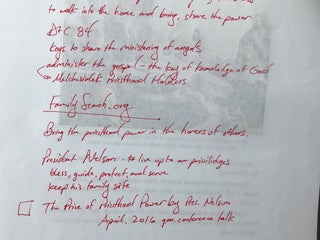 to walk into the home and bring, share the power
D&C 84
Keys to share the ministering of angels
administer the gospel - the key of knowledge of God
Melchizedek Priesthood Holders
FamilySearch.org
Bring the priesthood power in the homes of others.
President Nelson - to live up to our priviledges
bless, guide, protect, and serve
keep his family safe
The Price of Priesthood Power by Pres. Nelson
April, 2016 gen conference talk